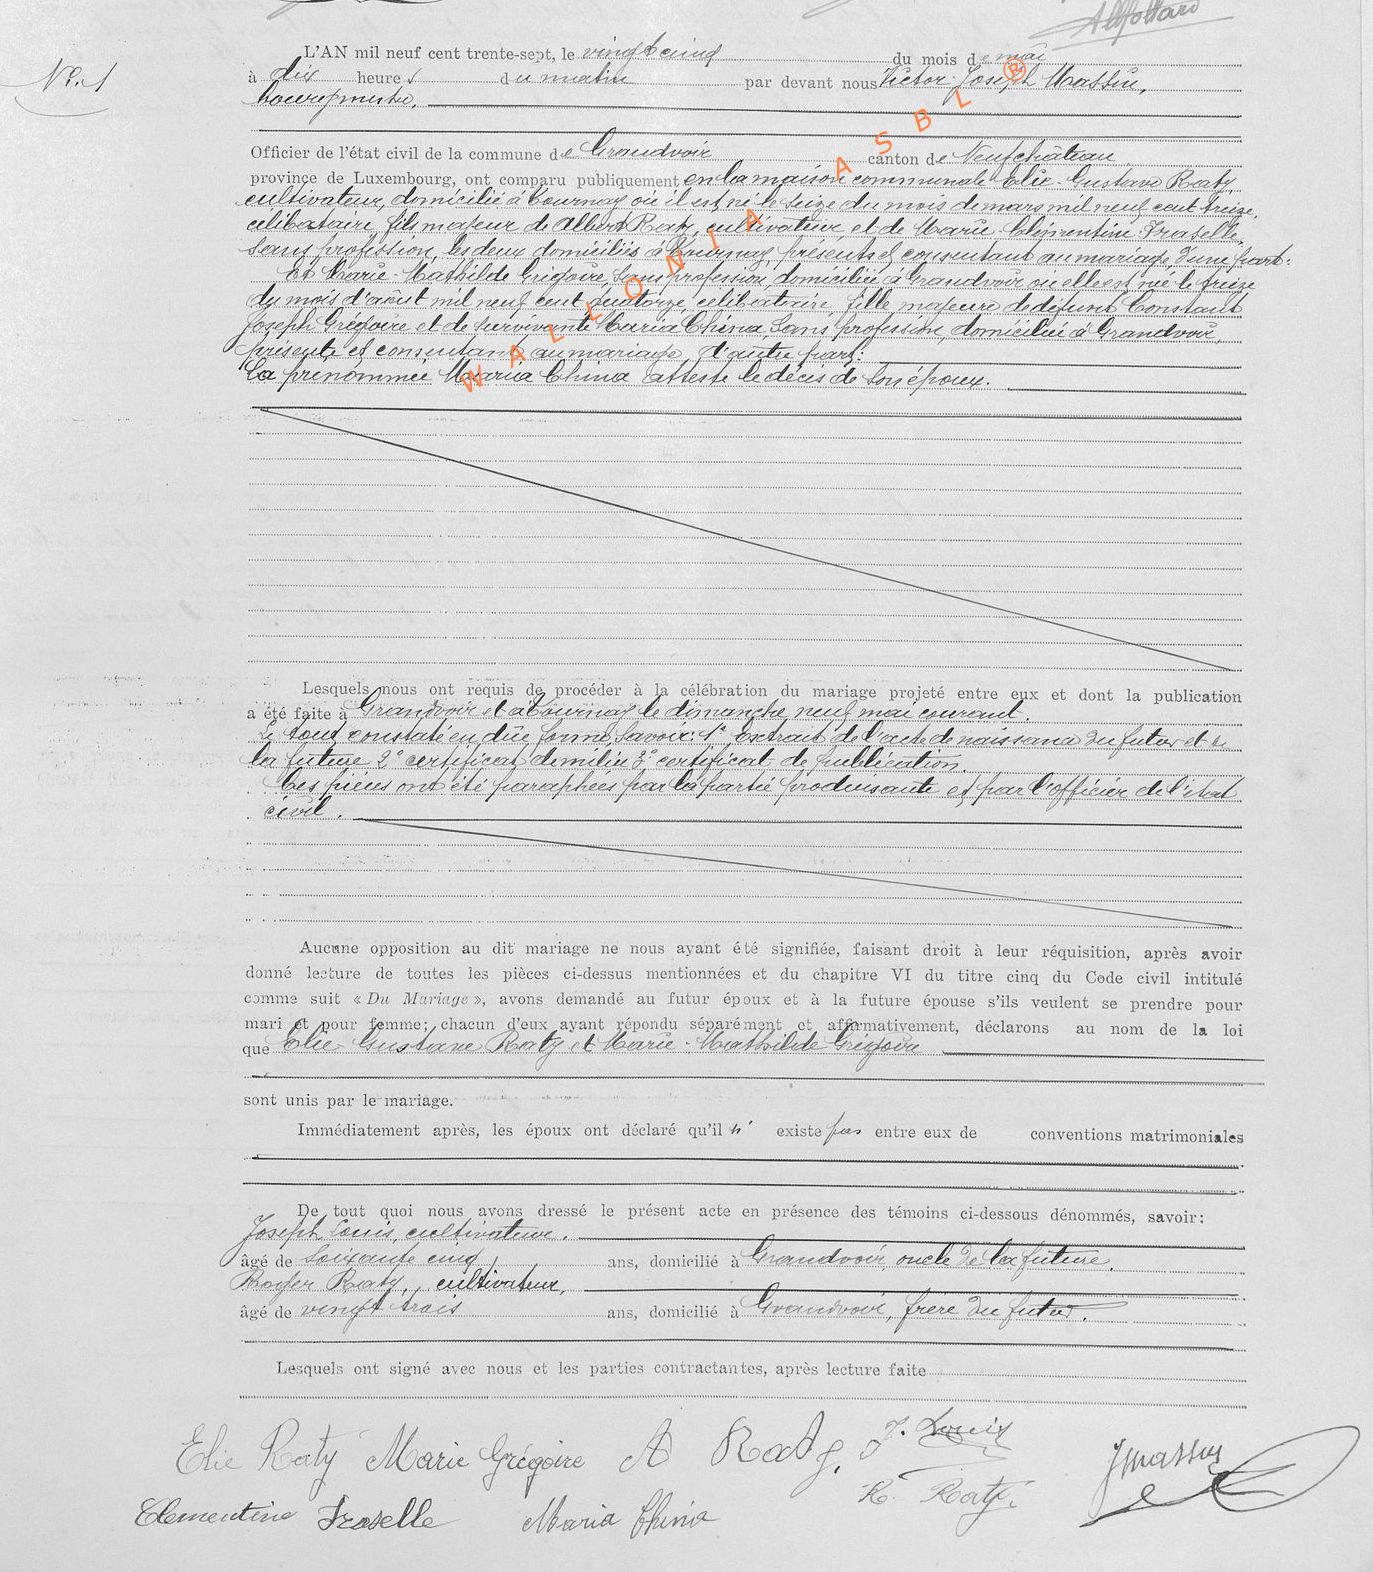 L'AN mil neuf cent trente-sept, le vingt cinq du mois de mai
N°. 1
à dix heures du matin par devant nous Victor Joseph Massin,
bourgmestre,
Officier de l'état civil de la commune de Grandvoir canton de Neufchâteau
province de Luxembourg, ont comparu publiquement en la maison communale Elie-Gustave Raty,
cultivateur, domicilié à Tournay où il est né le seize du mois de mars mil neuf cent treize,
célibataire, fils majeur de Albert Raty, cultivateur, et de Marie Clémentine Fraselle,
sans profession, les deux domiciliés à Tournay, présents et consentant au mariage d'une part:
Et Marie-Mathilde Grégoire, sans profession, domiciliée à Grandvoir où elle est née le treize
du mois d'août mil neuf cent quatorze, célibataire, fille majeure de défunt Constant
Joseph Grégoire et de survivante Maria China, sans profession, domiciliée à Grandvoir,
présente et consentant au mariage, d'autre part:
La prénommée Maria China atteste le décès de son époux.
WALLONIA ASBL ®
Lesquels nous ont requis de procéder à la célébration du mariage projeté entre eux et dont la publication
a été faite à Grandvoir et à Tournay le dimanche neuf mai courant.
Le tout constaté en due forme, savoir: 1° extrait de l'acte de naissance du futur et de
la future 2° certificat de milice 3° certificat de publication.
Ces pièces ont été paraphées par la partie produisante et par l'officier de l'état
civil.
Aucune opposition au dit mariage ne nous ayant été signifiée, faisant droit à leur réquisition, après avoir
donné lecture de toutes les pièces ci-dessus mentionnées et du chapitre VI du titre cinq du Code civil intitulé
comme suit « Du Mariage », avons demandé au futur époux et à la future épouse s'ils veulent se prendre pour
mari et pour femme; chacun d'eux ayant répondu séparément et affirmativement, déclarons au nom de la loi
que Elie Gustave Raty et Marie-Mathilde Grégoire
sont unis par le mariage.
Immédiatement après, les époux ont déclaré qu'il n' existe pas entre eux de conventions matrimoniales
De tout quoi nous avons dressé le présent acte en présence des témoins ci-dessous dénommés, savoir:
Joseph Louis, cultivateur.
âgé de soixante cinq ans, domicilié à Grandvoir, oncle de la future.
Roger Raty, cultivateur,
âgé de vingt trois ans, domicilié à Grandvoir, frère du futur.
Lesquels ont signé avec nous et les parties contractantes, après lecture faite
Elie Raty Marie Grégoire A Raty. J. Louis
R. Raty. J Massin
Clementine Fraselle Maria China